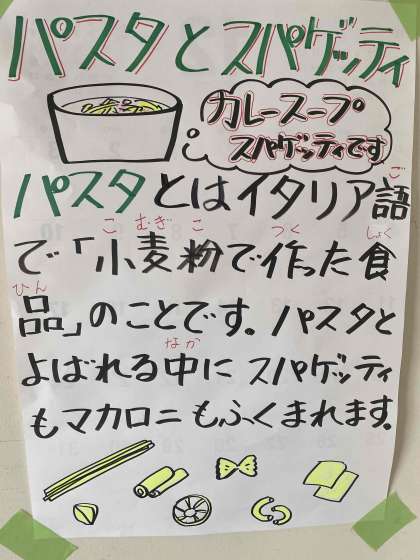 パスタとスパゲッティ
カレースープ
スパゲッティです
パスタとはイタリア語
ご
で「小麦粉で作った食
こ むぎ こ つく しょく
品」のことです。パスタと
ひん
よばれる中に スパゲッティ
なか
もマカロニもふくまれます。